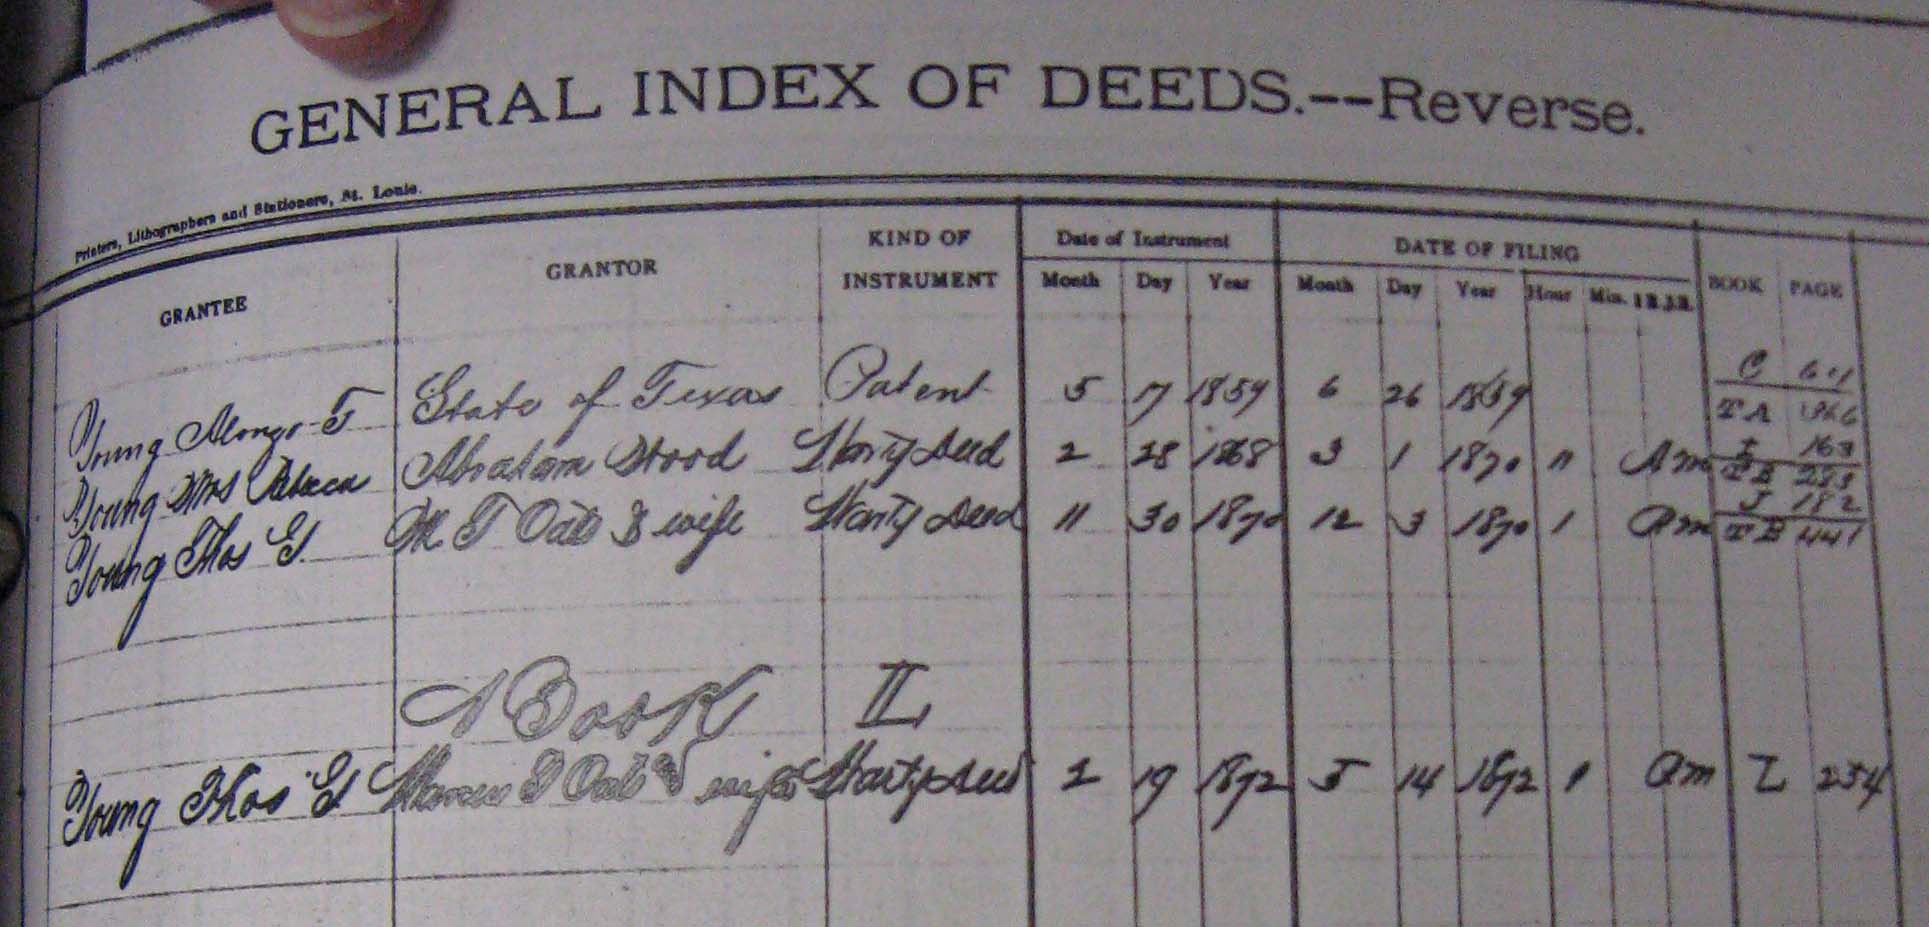 GENERAL INDEX OF DEEDS.--Reverse.
Printers, Lithographers and Stationers, St. Louis.
GRANTEE GRANTOR KIND OF INSTRUMENT Date of Instrument DATE OF FILING BOOK PAGE
Month Day Year Month Day Year Hour Min.
Young Alonzo T State of Texas Patent 5 17 1859 6 26 1859 C
TA
Young Mrs Abraham Wood Warty Deed 2 28 1868 3 1 1870 11 Am I
TB
Young Thos G. M T Oats & wife Warty Deed 11 30 1870 12 3 1870 1 Pm J 182
TB 441
Book L
Young Thos G T Oats & wife Warty Deed 2 19 1872 5 14 1872 1 Pm L 254